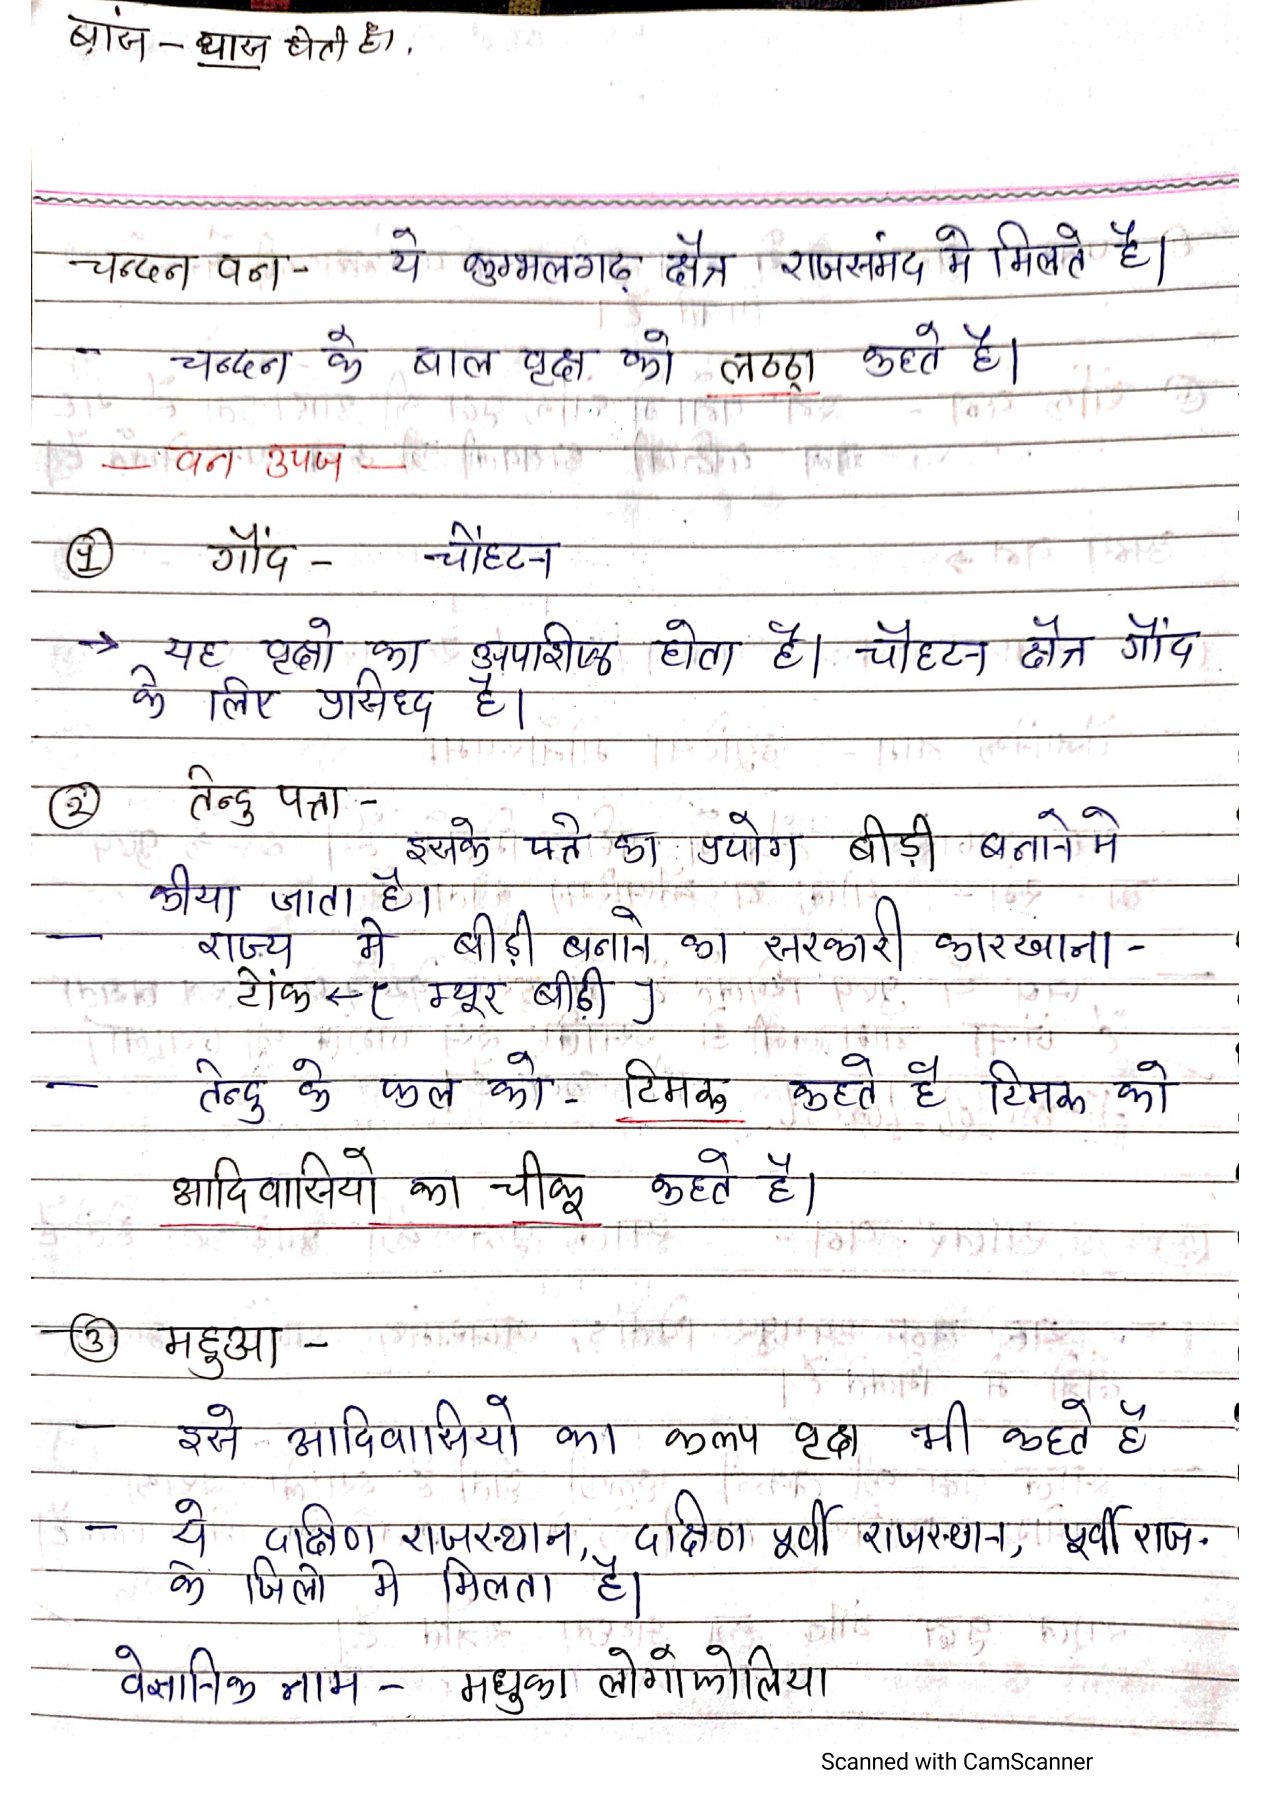 बांस - घास होती है।
चन्दन वन - ये कुम्भलगढ़ क्षैत्र राजसमंद मे मिलते है।
- चन्दन के बाल वृक्ष को लठ्ठा कहते है।
— वन उपज —
① गौंद - चौंहटन
→ यह वृक्षो का अपशिष्ठ होता है। चौहटन क्षैत्र गौंद
के लिए प्रसिध्द है।
② तेन्दु पत्ता -
इसके पत्ते का प्रयोग बीड़ी बनाने मे
कीया जाता है।
— राज्य मे बीड़ी बनाने का सरकारी कारखाना -
टोंक ← ( म्यूर बीड़ी )
— तेन्दु के फल को - टिमरू कहते है टिमरू को
आदिवासियो का चीकू कहते है।
③ महुआ -
- इसे आदिवासियो का कल्प वृक्ष भी कहते है
- ये दक्षिण राजस्थान, दक्षिण पूर्वी राजस्थान, पूर्वी राज.
के जिलो मे मिलता है।
वेज्ञानिक नाम - मधुका लोगोफोलिया
Scanned with CamScanner